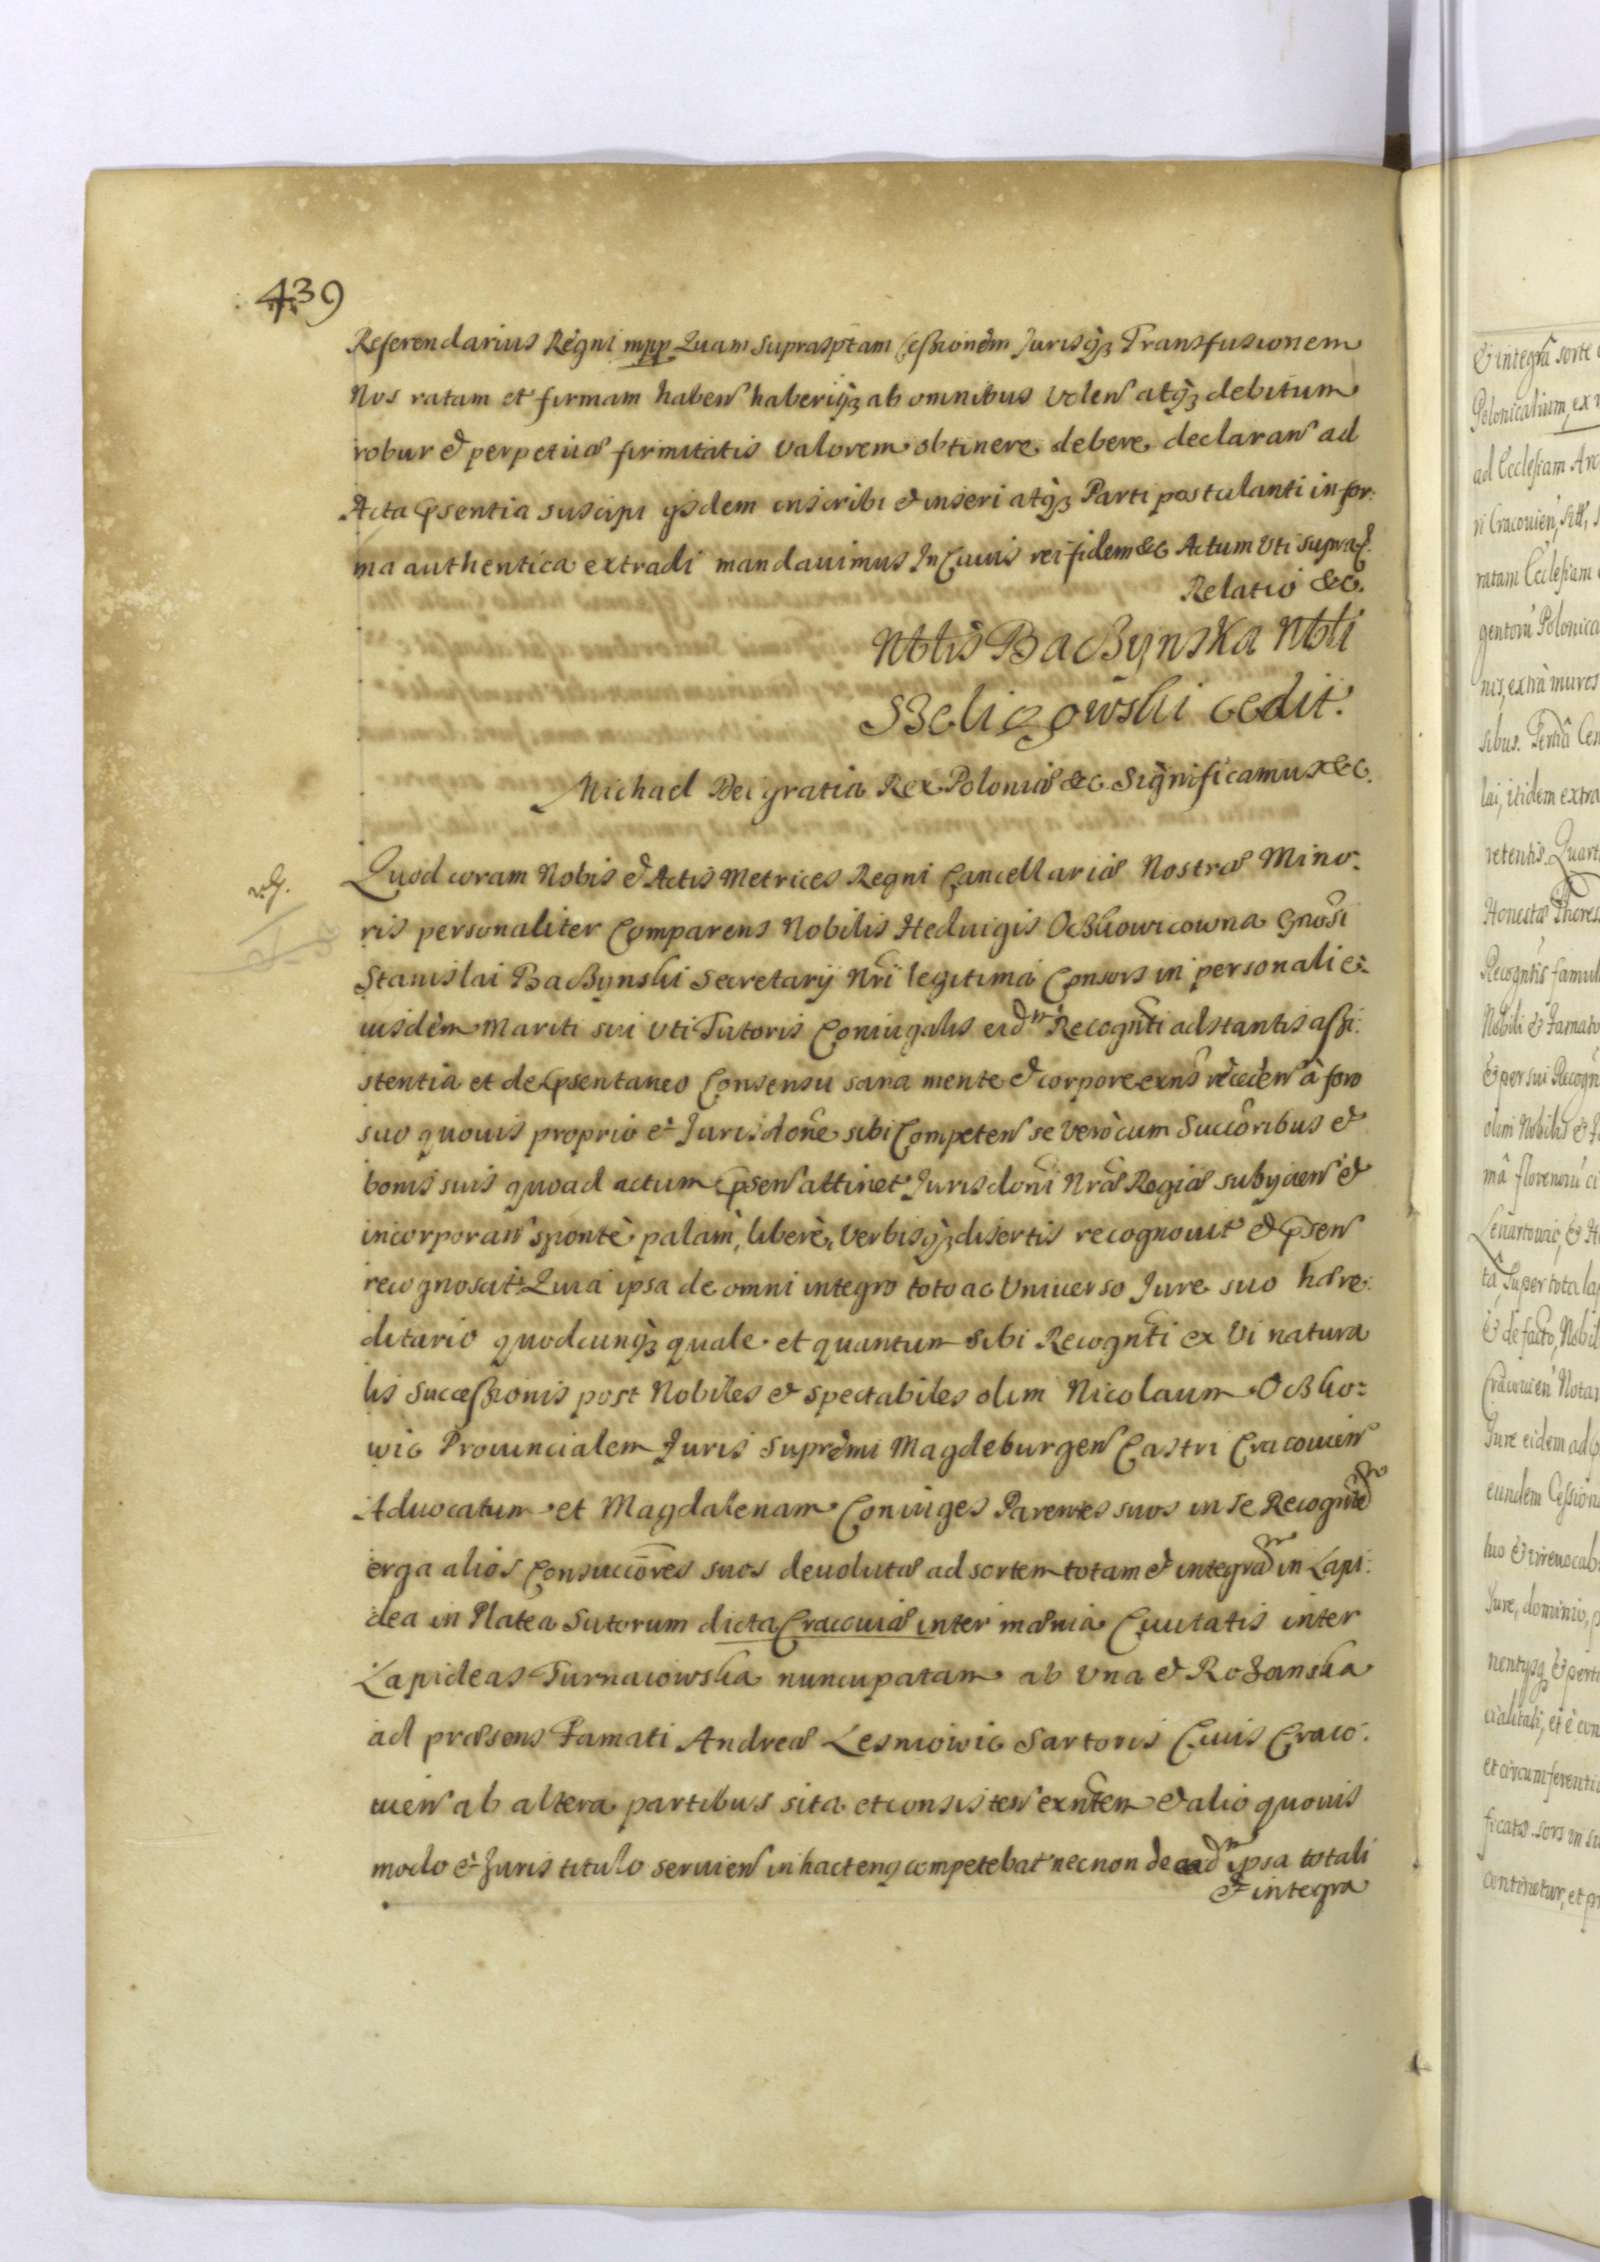 439
Referendarius Regni mpp Quam suprasptam Cessionem Jurisq3 Transfusionem
Nos ratam et firmam haben haberiq3 ab omnibus volen atq3 debitum
robur & perpetuæ firmitatis valorem obtinere debere declaran ad
Acta psentia suscipi ijsdem inscribi & inseri atq3 Parti postulanti in for:
ma authentica extradi mandauimus In Cuius rei fidem &c Actum Uti supra.
Relatio &c.
Nblis Baczynska Nbli
Szeligowski cedit.
Michael Dei gratia Rex Poloniæ &c. Significamus &c.
Quod coram Nobis & Actis Metrices Regni Cancellariæ Nostræ Mino:
ris personaliter Comparens Nobilis Heduigis Oczkowicowna Gnosi
Stanislai Baczynski Secretarij Nri legitima Consors in personali e:
iusdem Mariti sui uti Tutoris Coniugalis eidm Recognti adstantis assi:
stentia et de psentaneo Consensu sana mente & corpore exns receden à foro
suo quouis proprio & Jurisdone sibi Competen se verò cum Succoribus &
bonis suis quoad actum psen attinet Jurisdoni Nræ Regiæ subijcien &
incorporan sponte palam, liberè, verbisq3 disertis recognouit & psen
recognoscit. Quia ipsa de omni integro toto ac Uniuerso Jure suo hære:
ditario quodcunq3 quale et quantum sibi Recognti ex Vi natura
lis Successionis post Nobiles & spectabiles olim Nicolaum Oczko:
wic Prouincialem Juris Supremi Magdeburgen Castri Cracouien
Aduocatum et Magdalenam Coniuges Parentes suos in se Recogntem
erga alios Consuccores suos deuolutæ ad sortem totam & integram in Lapi:
dea in Platea Sutorum dicta Cracouiæ inter mænia Ciuitatis inter
Lapideas Turnaiowska nuncupatam ab una & Rożanska
ad præsens Famati Andreæ Lesniowic Sartoris Ciuis Craco:
uien ab altera partibus sita et consisten exntem & alio quouis
modo & Juris titulo seruien in hactenq competebat necnon de eadm ipsa totali
& integra